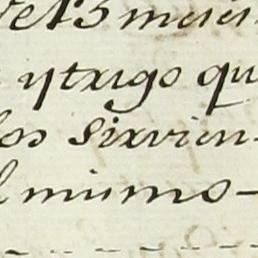 ytrigo qu
los sirvien-
l mismo-